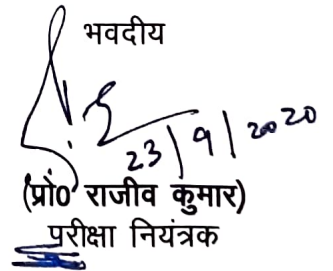 भवदीय
23/9/2020
(प्रों0 राजीव कुमार)
परीक्षा नियंत्रक